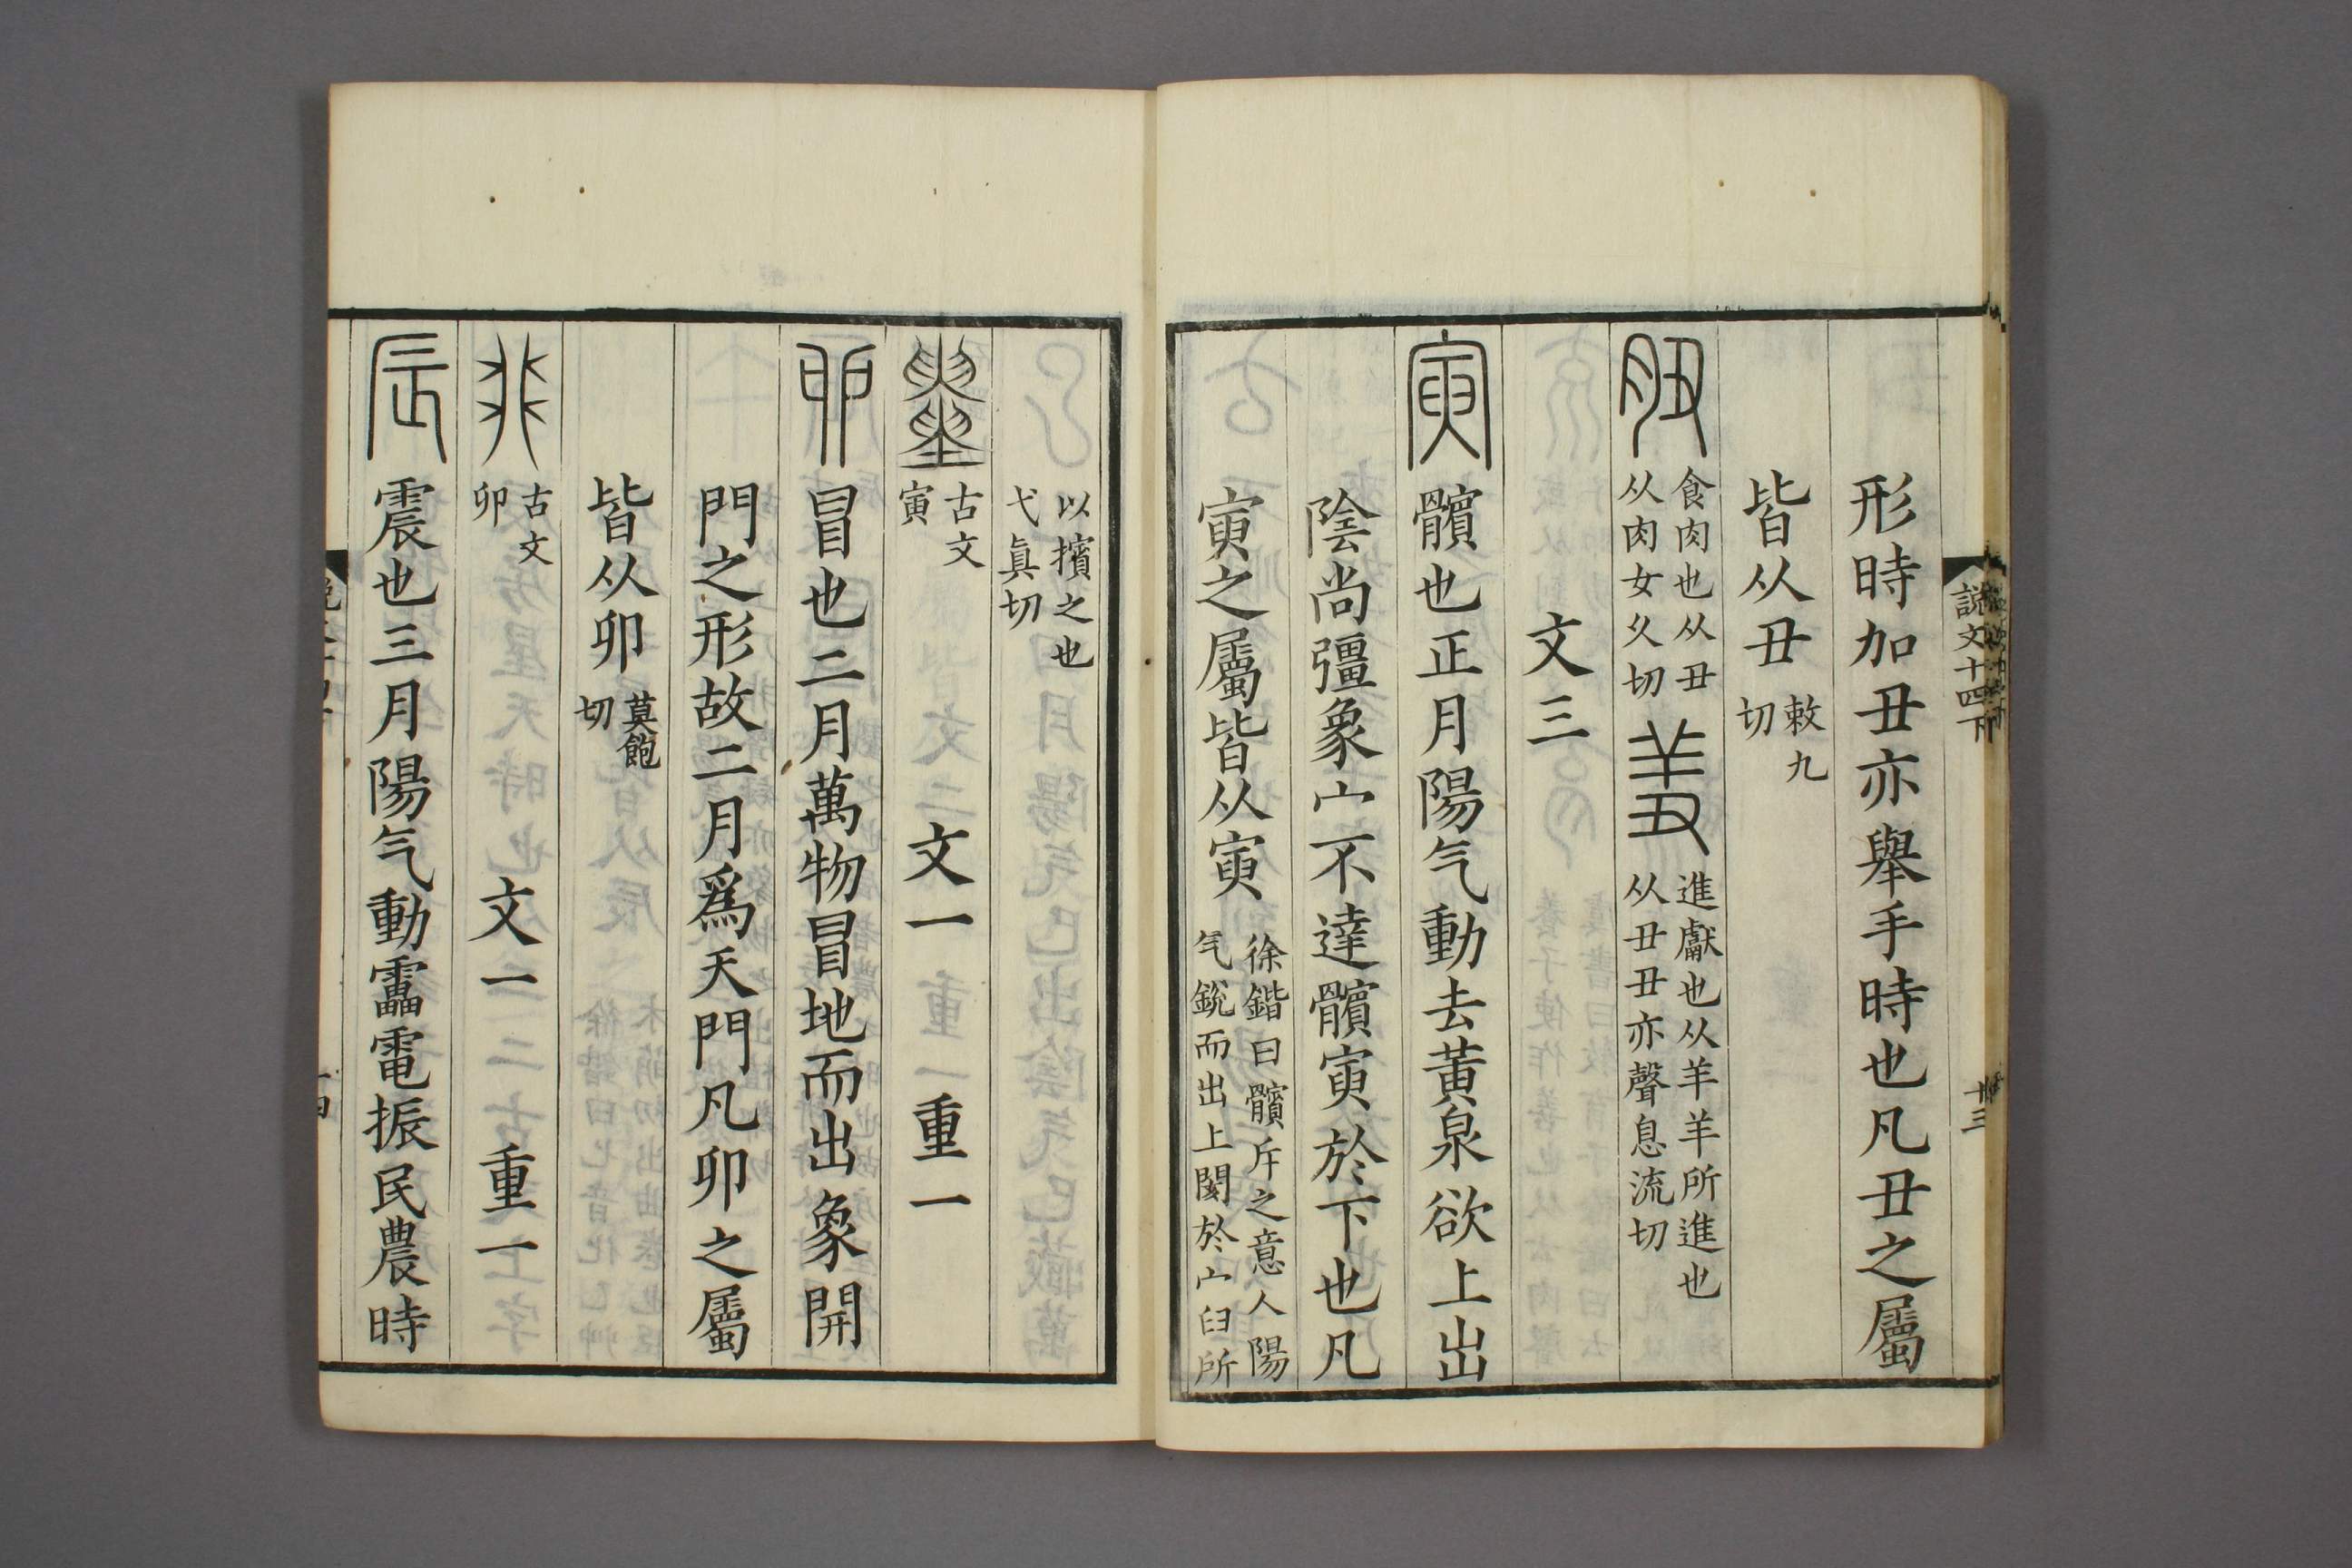 説文十四下
十三
形時加丑亦舉手時也凡丑之屬
皆从丑 敕九切
𦘔 食肉也从丑从肉女久切 羞 進獻也从羊羊所進也从丑丑亦聲息流切
文三
寅 髕也正月陽气動去黃泉欲上出
陰尚彊象宀不達髕寅於下也凡
寅之屬皆从寅 徐鍇曰髕斥之意人陽气銳而出上閡於宀臼所
以擯之也弋眞切
𡒆 古文寅 文一 重一
卯 冒也二月萬物冒地而出象開
門之形故二月爲天門凡卯之屬
皆从卯 莫飽切
𩇨 古文卯 文一 重一
辰 震也三月陽气動靁電振民農時